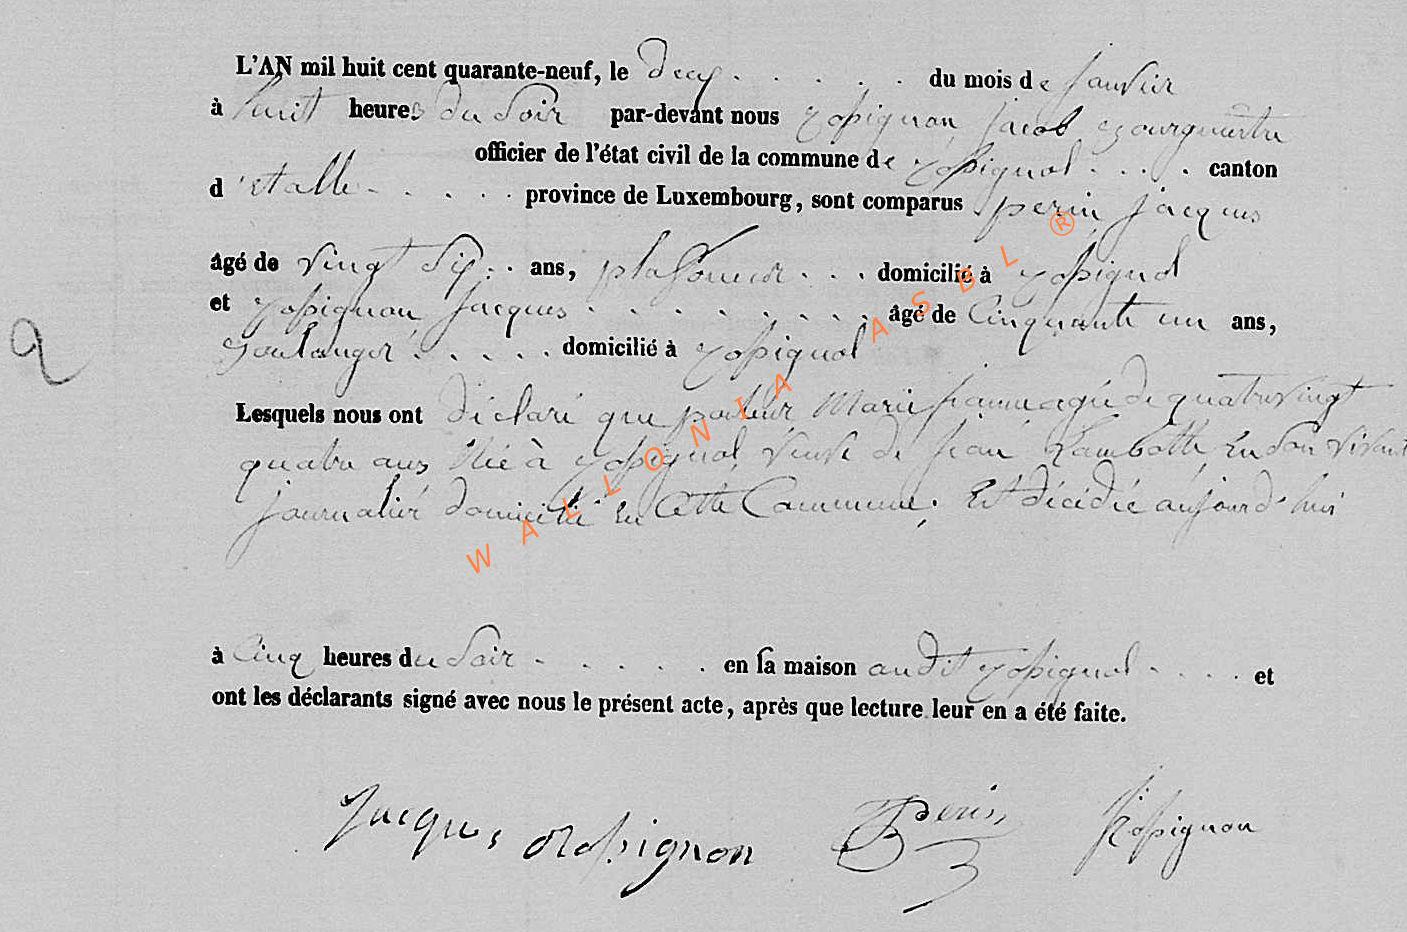 L'AN mil huit cent quarante-neuf, le dix . . . . . du mois de janvier
à huit heures du soir par-devant nous Rossignon Jacob Bourguemêtre
officier de l'état civil de la commune de Rossignol . . . . canton
d'etalle . . . . . province de Luxembourg, sont comparus perin jacques
âgé de vingt six . . ans, plafoneur . . . domicilié à Rossignol
et Rossignon jacques . . . . . . . . âgé de Cinquante un ans,
Boulanger . . . . . domicilié à Rossignol
Lesquels nous ont déclaré que Marie jeanne agée de quatrevingt
quatre ans Née à Rossignol, veuve de jean Lambotte, en son vivant
journalier domicilié en Cette Commune. Est décédée aujourd'hui
à Cinq heures du soir . . . . . en sa maison audit Rossignol . . . . et
ont les déclarants signé avec nous le présent acte, après que lecture leur en a été faite.
Jacques Rossignon Perin Rossignon
2
WALLONIA ASBL ®